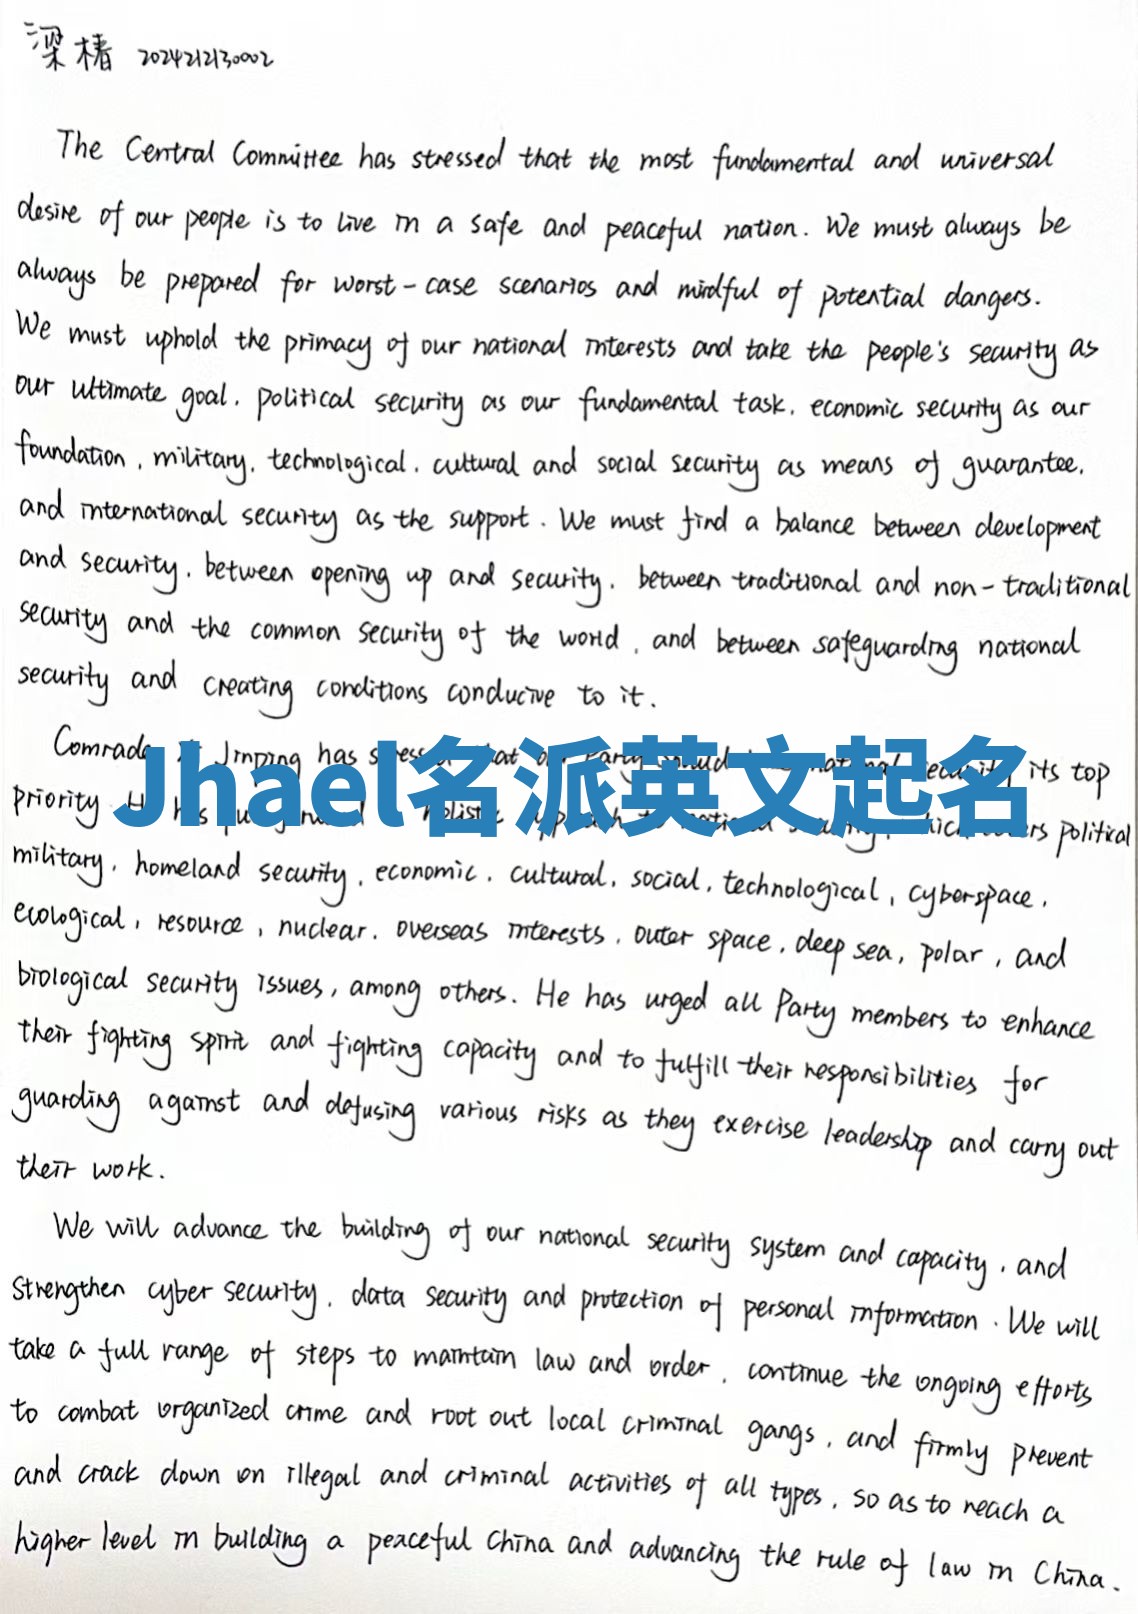 梁椿 2024212130002
The Central Committee has stressed that the most fundamental and universal
desire of our people is to live in a safe and peaceful nation. We must always be
always be prepared for worst-case scenarios and mindful of potential dangers.
We must uphold the primacy of our national interests and take the people's security as
our ultimate goal, political security as our fundamental task, economic security as our
foundation, military, technological, cultural and social security as means of guarantee,
and international security as the support. We must find a balance between development
and security, between opening up and security, between traditional and non-traditional
security and the common security of the world, and between safeguarding national
security and creating conditions conducive to it.
Comrade Jinping has its top
Jhael名派英文起名
priority political
military, homeland security, economic, cultural, social, technological, cyberspace,
ecological, resource, nuclear, overseas interests, outer space, deep sea, polar, and
biological security issues, among others. He has urged all Party members to enhance
their fighting spirit and fighting capacity and to fulfill their responsibilities for
guarding against and defusing various risks as they exercise leadership and carry out
their work.
We will advance the building of our national security system and capacity, and
strengthen cyber security, data security and protection of personal information. We will
take a full range of steps to maintain law and order, continue the ongoing efforts
to combat organized crime and root out local criminal gangs, and firmly prevent
and crack down on illegal and criminal activities of all types, so as to reach a
higher level in building a peaceful China and advancing the rule of law in China.